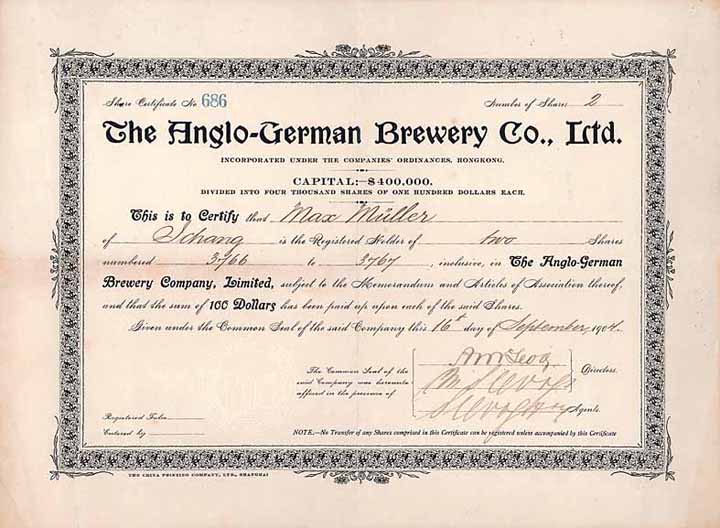 Share Certificate No 686 Number of Shares 2
The Anglo-German Brewery Co., Ltd.
INCORPORATED UNDER THE COMPANIES' ORDINANCES, HONGKONG.
CAPITAL:—$400,000.
DIVIDED INTO FOUR THOUSAND SHARES OF ONE HUNDRED DOLLARS EACH.
This is to Certify that Max Müller
of Ichang is the Registered Holder of two Shares
numbered 3766 to 3767, inclusive, in The Anglo-German
Brewery Company, Limited, subject to the Memorandum and Articles of Association thereof,
and that the sum of 100 Dollars has been paid up upon each of the said Shares.
Given under the Common Seal of the said Company this 16th day of September, 1904.
The Common Seal of the
said Company was hereunto
affixed in the presence of
Directors.
Agents.
Registered Folio
Entered by
NOTE.—No Transfer of any Shares comprised in this Certificate can be registered unless accompanied by this Certificate
THE CHINA PRINTING COMPANY, LTD., SHANGHAI